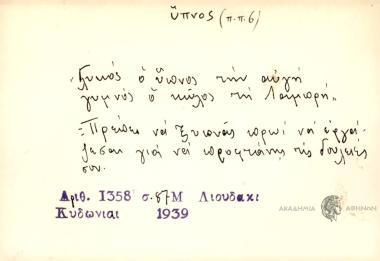 ὕπνος (π.π.6)
"Γλυκός ὁ ὕπνος τήν αὐγή
γυμνός ὁ κῶλος τή Λαμπρή"
= Πρέπει νά ξυπνᾶς πρωί νά ἐργά-
ζεσαι γιά νά προφτάνης τίς δουλειές
σου.
Αριθ. 1358 σ. 87 Μ Λιουδακι
Κυδωνιαι 1939
ΑΚΑΔΗΜΙΑ ΑΘΗΝΩΝ